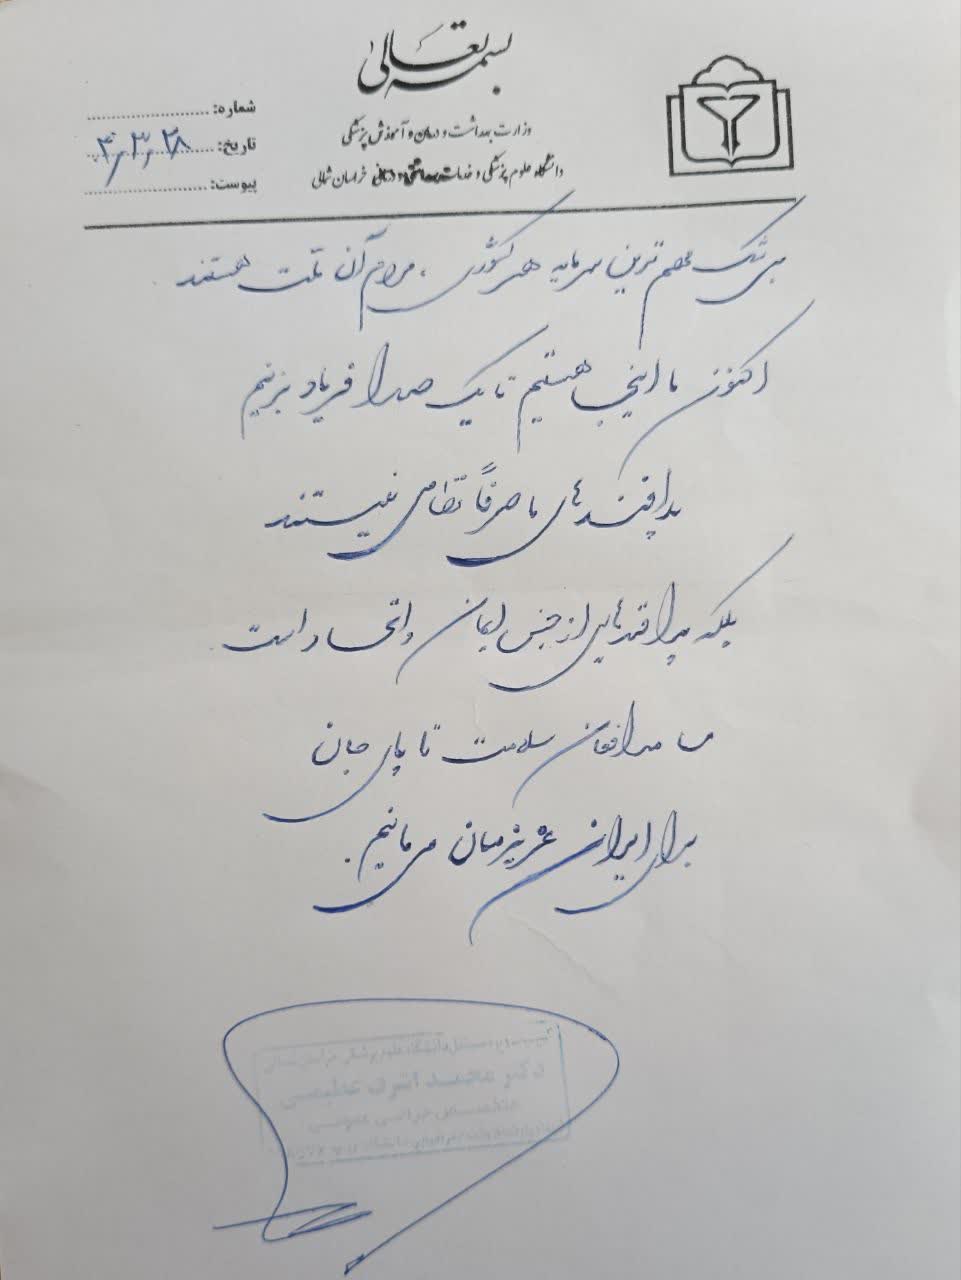 بسمه تعالی
وزارت بهداشت و درمان و آموزش پزشکی
دانشگاه علوم پزشکی و خدمات بهداشتی و درمانی خراسان شمالی
شماره:
تاریخ: ۴,۳,۲۸
پیوست:
بی شک مهم ترین سرمایه هر کشوری ، مردم آن ملت هستند .
اکنون ما اینجا هستیم تا یک صدا فریاد بزنیم
پدافندهای ما صرفاً نظامی نیستند
بلکه پدافندهایی از جنس ایمان و اتحاد است .
ما مدافعان سلامت تا پای جان
برای ایران عزیزمان می مانیم .
دانشگاه علوم پزشکی خراسان شمالی
دکتر
متخصص جراحی عمومی